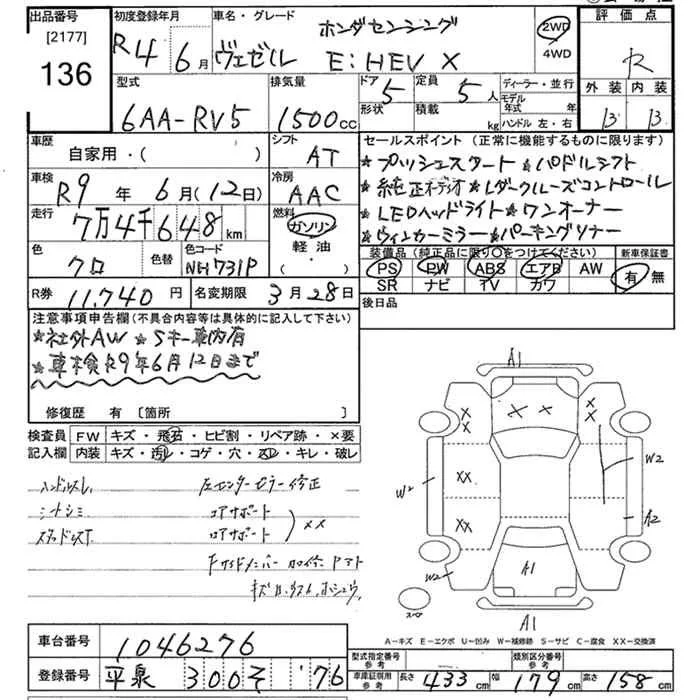 出品番号
[2177]
136
初度登録年月
R4 6月
車名・グレード
ホンダセンシング
ヴェゼル E:HEV X
2WD
4WD
評価点
R
外装 内装
B B
型式
6AA-RV5
排気量
1500cc
ドア
5
形状
定員
5人
積載
kg
ディーラー・並行
モデル年式 年式
ハンドル 左・右
車歴
自家用・( )
シフト
AT
セールスポイント (正常に機能するものに限ります)
★プッシュスタート★パドルシフト
★純正オーディオ★レーダークルーズコントロール
★LEDヘッドライト★ワンオーナー
★ウィンカーミラー★パーキングソナー
車検
R9年 6月(12日)
冷房
AAC
走行
7万4千648km
燃料
ガソリン
軽油
・( )
色
クロ
色替
色コード
NH731P
装備品 (純正品に限り○をつけてください)
PS PW ABS エアB AW
SR ナビ TV カワ
新車保証書
有 無
R券 11,740円
名変期限 3月28日
後日品
注意事項申告欄(不具合内容等は具体的に記入して下さい)
★社外AW ★Sキー車内有
★車検R9年6月12日まで
修復歴 有 [箇所 ]
検査員
記入欄
FW キズ・飛石・ヒビ割・リペア跡・×要
内装 キズ・汚レ・コゲ・穴・スレ・キレ・破レ
ハンドルスレ
シートシミ
左センターピラー修正
コアサポート
ロアサポート
XX
A1
XX
XX
XX
XX
XX
W2
W2
A2
W2
A1
A1
スペア
A-キズ E-エクボ U-凹み W-補修跡 S-サビ C-腐食 XX-交換済
車台番号
1046276
登録番号
平泉 300 そ ・・76
型式指定番号
参考
類別区分番号
参考
車庫証明用
参考
長さ 433cm 幅 179cm 高さ 158cm